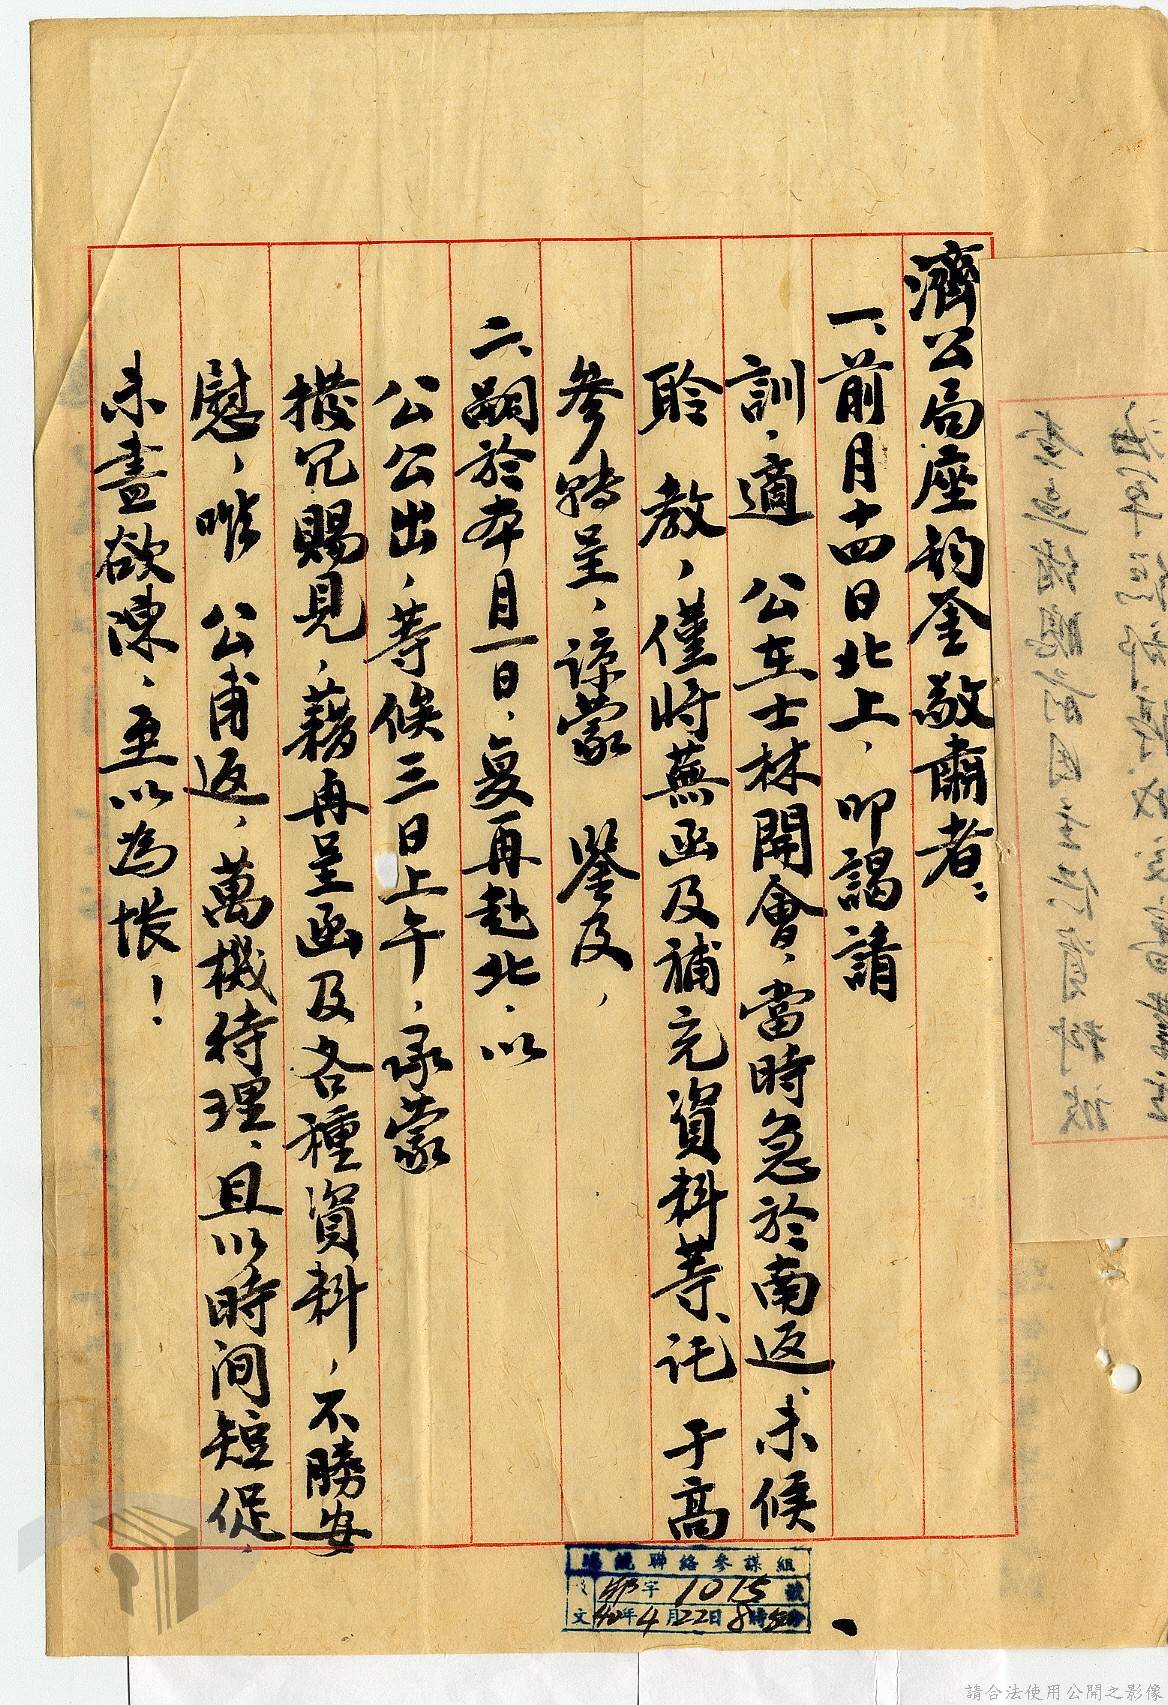 濟公局座鈞鉴敬肅者：
一、前月十四日北上，叩謁請
訓，適　公在士林開會，當時急於南返，未候
聆　教，僅將蕪函及補充資料等，託　于高
參轉呈，諒蒙　鑒及，
二、嗣於本月一日，复再赴北，以
公公出，等候三日上午，承蒙
撥冗賜見，藉再呈函及各種資料，不勝安
慰，唯　公甫返，萬機待理，且以時间短促，
未盡欲陳，至以為悵！
聯絡參謀組
字1015號
文40年4月22日8時50分
請合法使用公開之影像